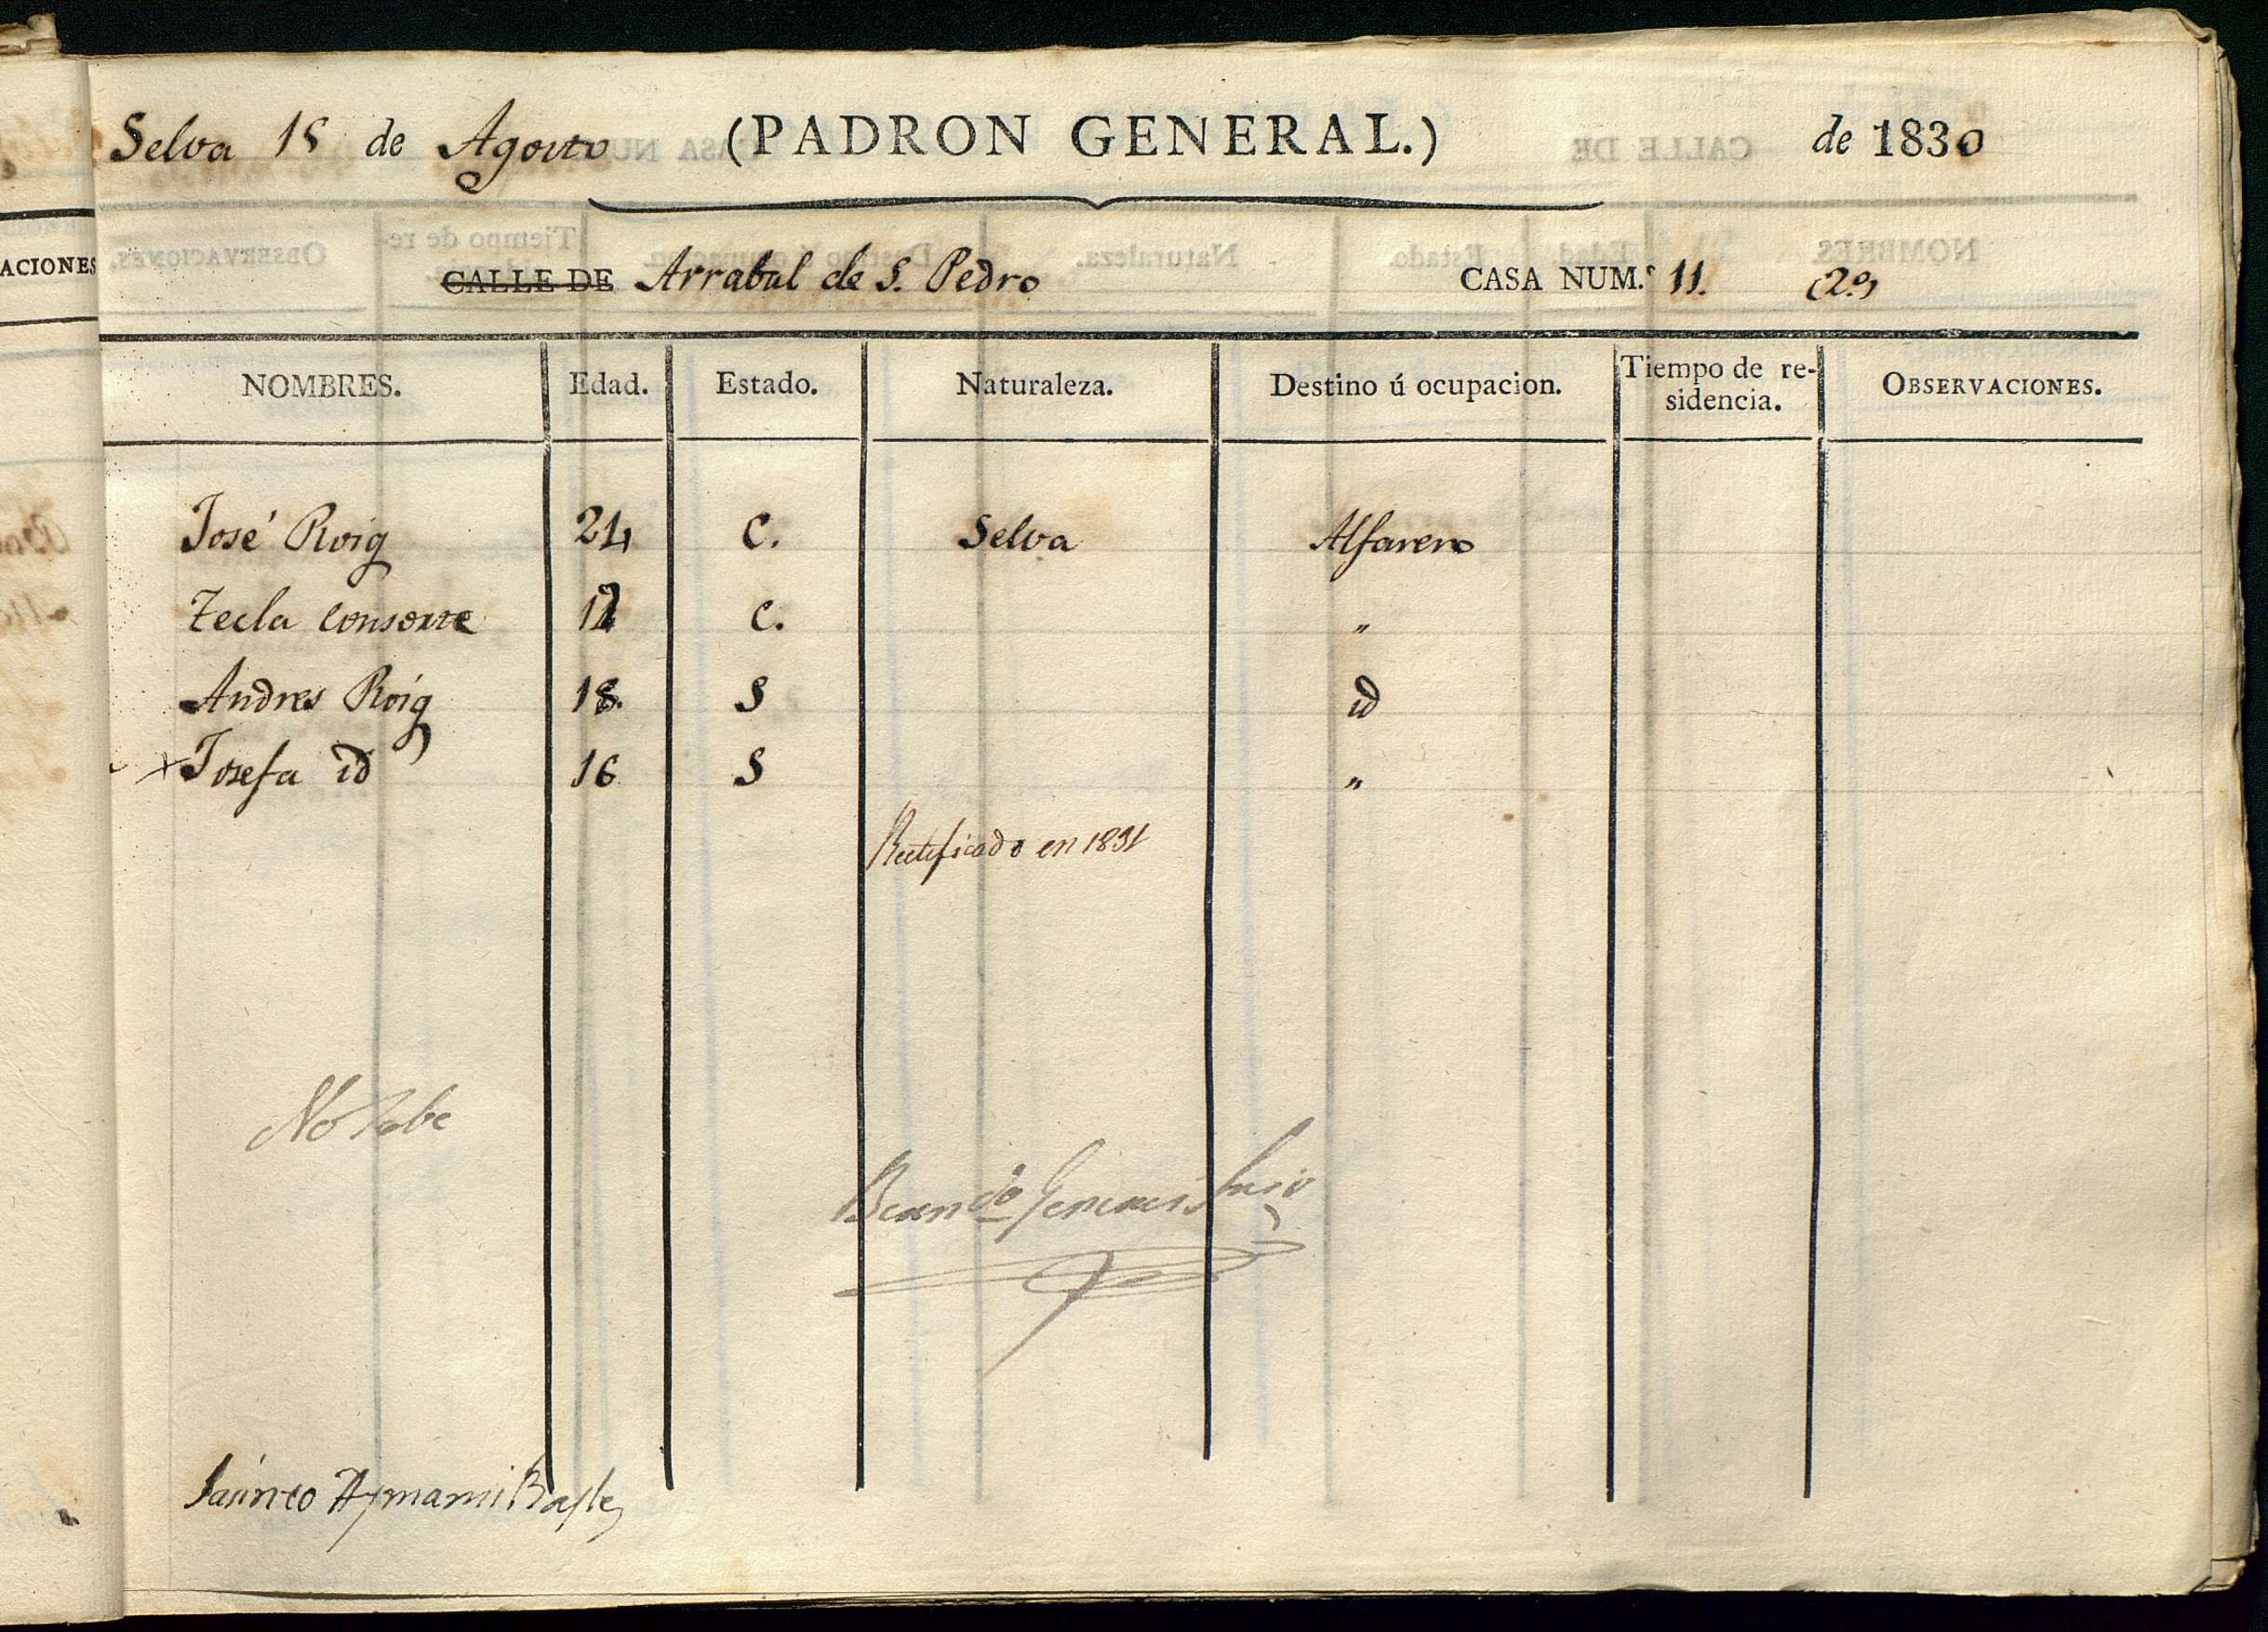 Selva 18 de Agosto (PADRON GENERAL.) de 1830
CALLE DE Arrabal de S. Pedro CASA NUM.º 11. (2º)
ACIONES
NOMBRES. Edad. Estado. Naturaleza. Destino ú ocupacion. Tiempo de re-
sidencia. OBSERVACIONES.
José Roig 24 C. Selva Alfarero
Tecla consorte C. "
Andres Roig 18. S id
Josefa id 16 S "
Rectificado en 1831
No Sabe
Jasinto Aymami Bayle